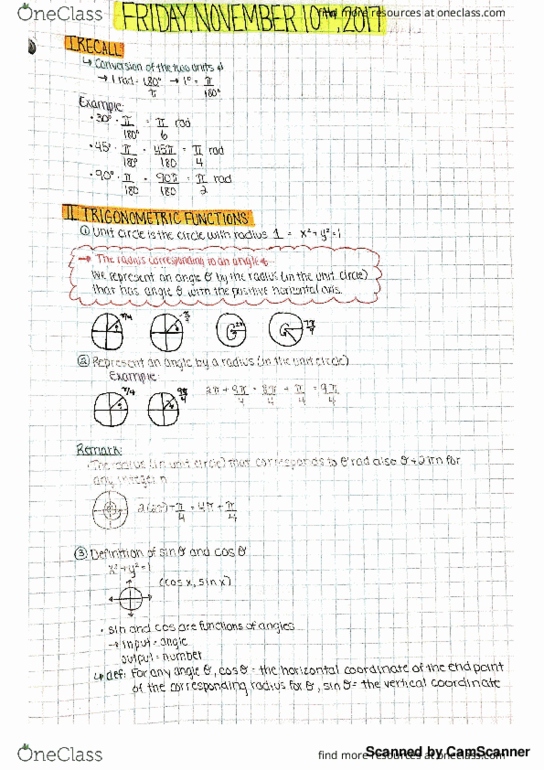 OneClass
find more resources at oneclass.com
FRIDAY, NOVEMBER 10th, 2017
I RECALL
↳ Conversion of the two units ↓
→ 1 rad = 180°/π → 1° = π/180°
Example:
• 30° · π/180° = π/6 rad
• 45° · π/180° = 45π/180 = π/4 rad
• 90° · π/180 = 90π/180 = π/2 rad
II TRIGONOMETRIC FUNCTIONS
① Unit circle is the circle with radius 1 = x²+y²=1
→ The radius corresponding to an angle
We represent an angle θ by the radius (in the unit circle)
that has angle θ with the positive horizontal axis.
π/4
2π
② Represent an angle by a radius (in the unit circle)
Example:
π/4 9π/4 2π + π/4 = 8π/4 + π/4 = 9π/4
Remark:
• The radius (in unit circle) that corresponds to θ rad also θ+2πn for
any integer n
2(2π)+π/4 = 4π+π/4
③ Definition of sin θ and cos θ
x²+y²=1
(cos x, sin x)
• sin and cos are functions of angles
→ input = angle
output = number
↳ def: For any angle θ, cos θ = the horizontal coordinate of the end point
of the corresponding radius for θ, sin θ = the vertical coordinate
OneClass
find more resources at oneclass.com
Scanned by CamScanner